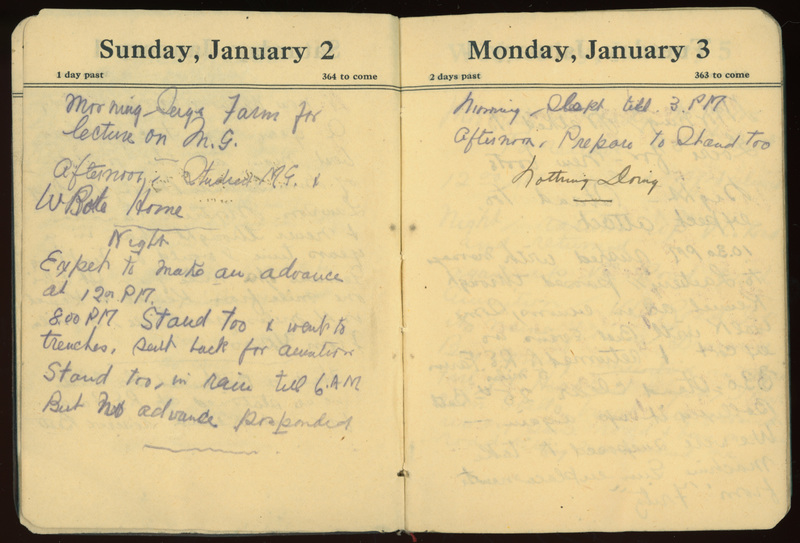 Sunday, January 2
1 day past 364 to come
Morning Farm for
lecture on M.G.
Afternoon, Studied M.G. &
Wrote Home
Night
Expet to make an advance
at 12 P.M.
8.00 P.M Stand too & went to
trenches, sent back for
Stand too, in rain till 6 A.M
But no advance posponded
Monday, January 3
2 days past 363 to come
Morning Slept till 3. P.M
Afternoon, Prepare to Stand too
Nothing Doing